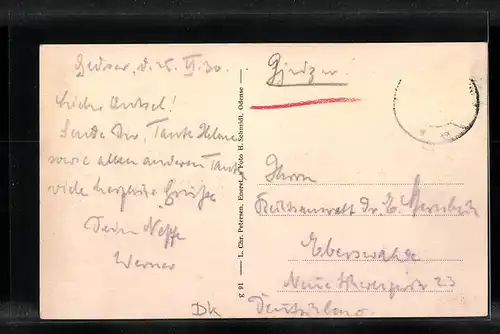 Gedser, d. 25. VI. 30.
Lieber Onkel!
Sende Dir, Tante
sowie allen anderen
viele herzliche Grüße
Dein Neffe
Werner
g 91 — L. Chr. Petersen, Eneret, Foto H. Schmidt, Odense —
Herrn
Rechtsanwalt Dr. E.
Eberswalde
Neue 23
Deutschland.
Dk